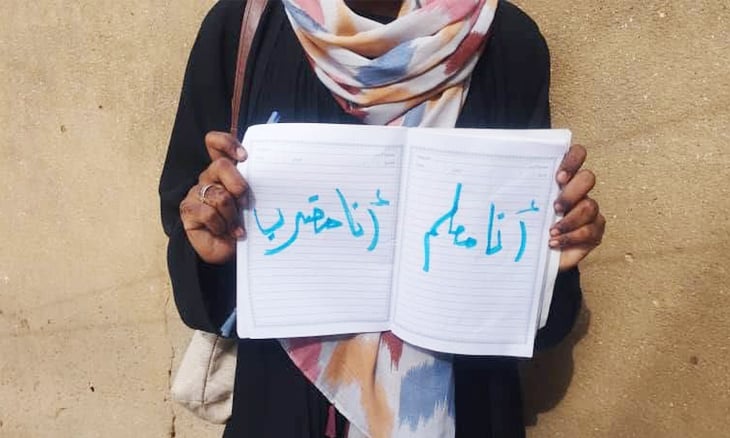 أنا معلم
أنا مضرب